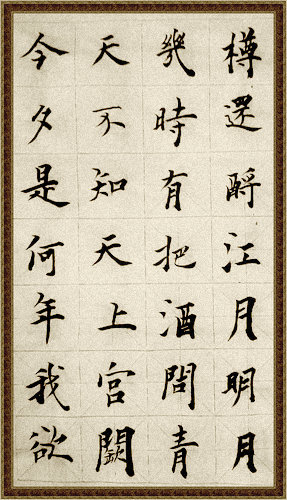 樽還酹江月明月
幾時有把酒問青
天不知天上宮闕
今夕是何年我欲